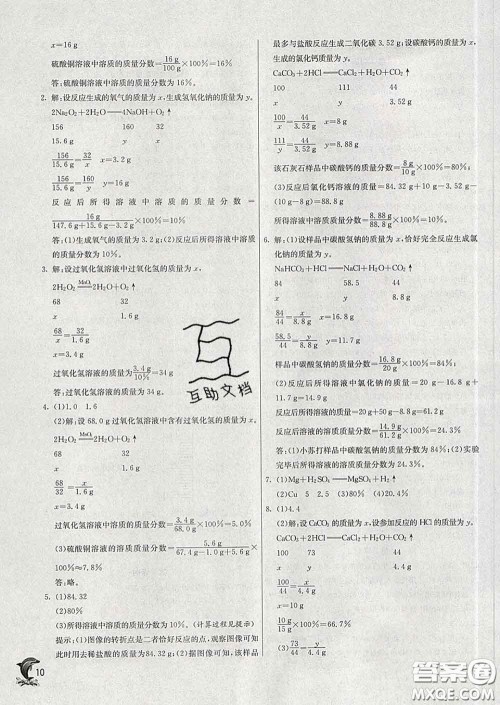 x=16 g
硫酸铜溶液中溶质的质量分数=16 g/100 g×100%=16%
答:硫酸铜溶液中溶质的质量分数为16%。
2. 解:设反应生成的氧气的质量为x,生成氢氧化钠的质量为y。
2Na₂O₂+2H₂O══4NaOH+O₂↑
156 160 32
15.6 g y x
156/15.6 g=32/x x=3.2 g
156/15.6 g=160/y y=16 g
反应后所得溶液中溶质的质量分数=
16 g/(147.6 g+15.6 g-3.2 g)×100%=10%
答:(1)生成氧气的质量为3.2 g;(2)反应后所得溶液中溶
质的质量分数为10%。
3. 解:设过氧化氢溶液中过氧化氢的质量为x。
2H₂O₂ MnO₂══2H₂O+O₂↑
68 32
x 1.6 g
68/x=32/1.6 g
x=3.4 g
过氧化氢溶液的质量为3.4 g/10%=34 g
答:过氧化氢溶液的质量为34 g。
4. (1)1.01 1.6
(2)解:设68.0 g过氧化氢溶液中含有过氧化氢的质量为x。
2H₂O₂ MnO₂══2H₂O+O₂↑
68 32
x 1.6 g
68/x=32/1.6 g
x=3.4 g
过氧化氢溶液中溶质的质量分数=3.4 g/68.0 g×100%=5%
(3)硫酸铜溶液中溶质的质量分数=5.6 g/(67.4 g-1.01 g+5.6 g)×
100%≈7.8%
答:略。
5. (1)84.32
(2)80%
(3)所得溶液中溶质的质量分数为10%。(计算过程见提示)
提示:(1)图像的转折点是二者恰好反应的点,观察图像可知
此时用去稀盐酸的质量为84.32 g。(2)据图像可知,该样品
10
最多与盐酸反应生成二氧化碳3.52 g;设碳酸钙的质量为x,
生成的氯化钙质量为y。
CaCO₃+2HCl══CaCl₂+H₂O+CO₂↑
100 111 44
x y 3.52 g
100/x=44/3.52 g x=8 g
111/y=44/3.52 g y=8.88 g
该石灰石样品中碳酸钙的质量分数=8 g/10 g×100%=80%
(3)反应后氯化钙溶液的质量=84.32 g+10 g-3.52 g-
(10 g-8 g)=88.8 g
所得溶液中溶质的质量分数=8.88 g/88.8 g×100%=10%。
6. (1)解:设样品中碳酸氢钠的质量为x,恰好完全反应生成氯
化钠的质量为y。
NaHCO₃+HCl══NaCl+H₂O+CO₂↑
84 58.5 44
x y 8.8 g
84/44=x/8.8 g x=16.8 g
58.5/44=y/8.8 g y=11.7 g
样品中碳酸氢钠的质量分数=16.8 g/20 g×100%=84%;
(2)反应后溶液中氯化钠的质量=20 g-16.8 g+
11.7 g=14.9 g
反应后所得溶液的质量=20 g+50 g-8.8 g=61.2 g
反应后所得溶液中溶质的质量分数=14.9 g/61.2 g×100%≈
24.3%
答:(1)小苏打样品中碳酸氢钠的质量分数为84%;(2)实验
完毕后所得溶液中溶质的质量分数为24.3%。
7. (1)Mg+H₂SO₄══MgSO₄+H₂↑
(2)Cu 5 2.5 (3)20% (4)50%
8. (1)(2)解:设CaCO₃的质量为x,设参加反应的HCl的质量为y。
CaCO₃+2HCl══CaCl₂+H₂O+CO₂↑
100 73 44
x y 4.4 g
100/44=x/4.4 g
x=10 g
10 g/15 g×100%=66.7%
互助文档
答案圈
MXQE.COM